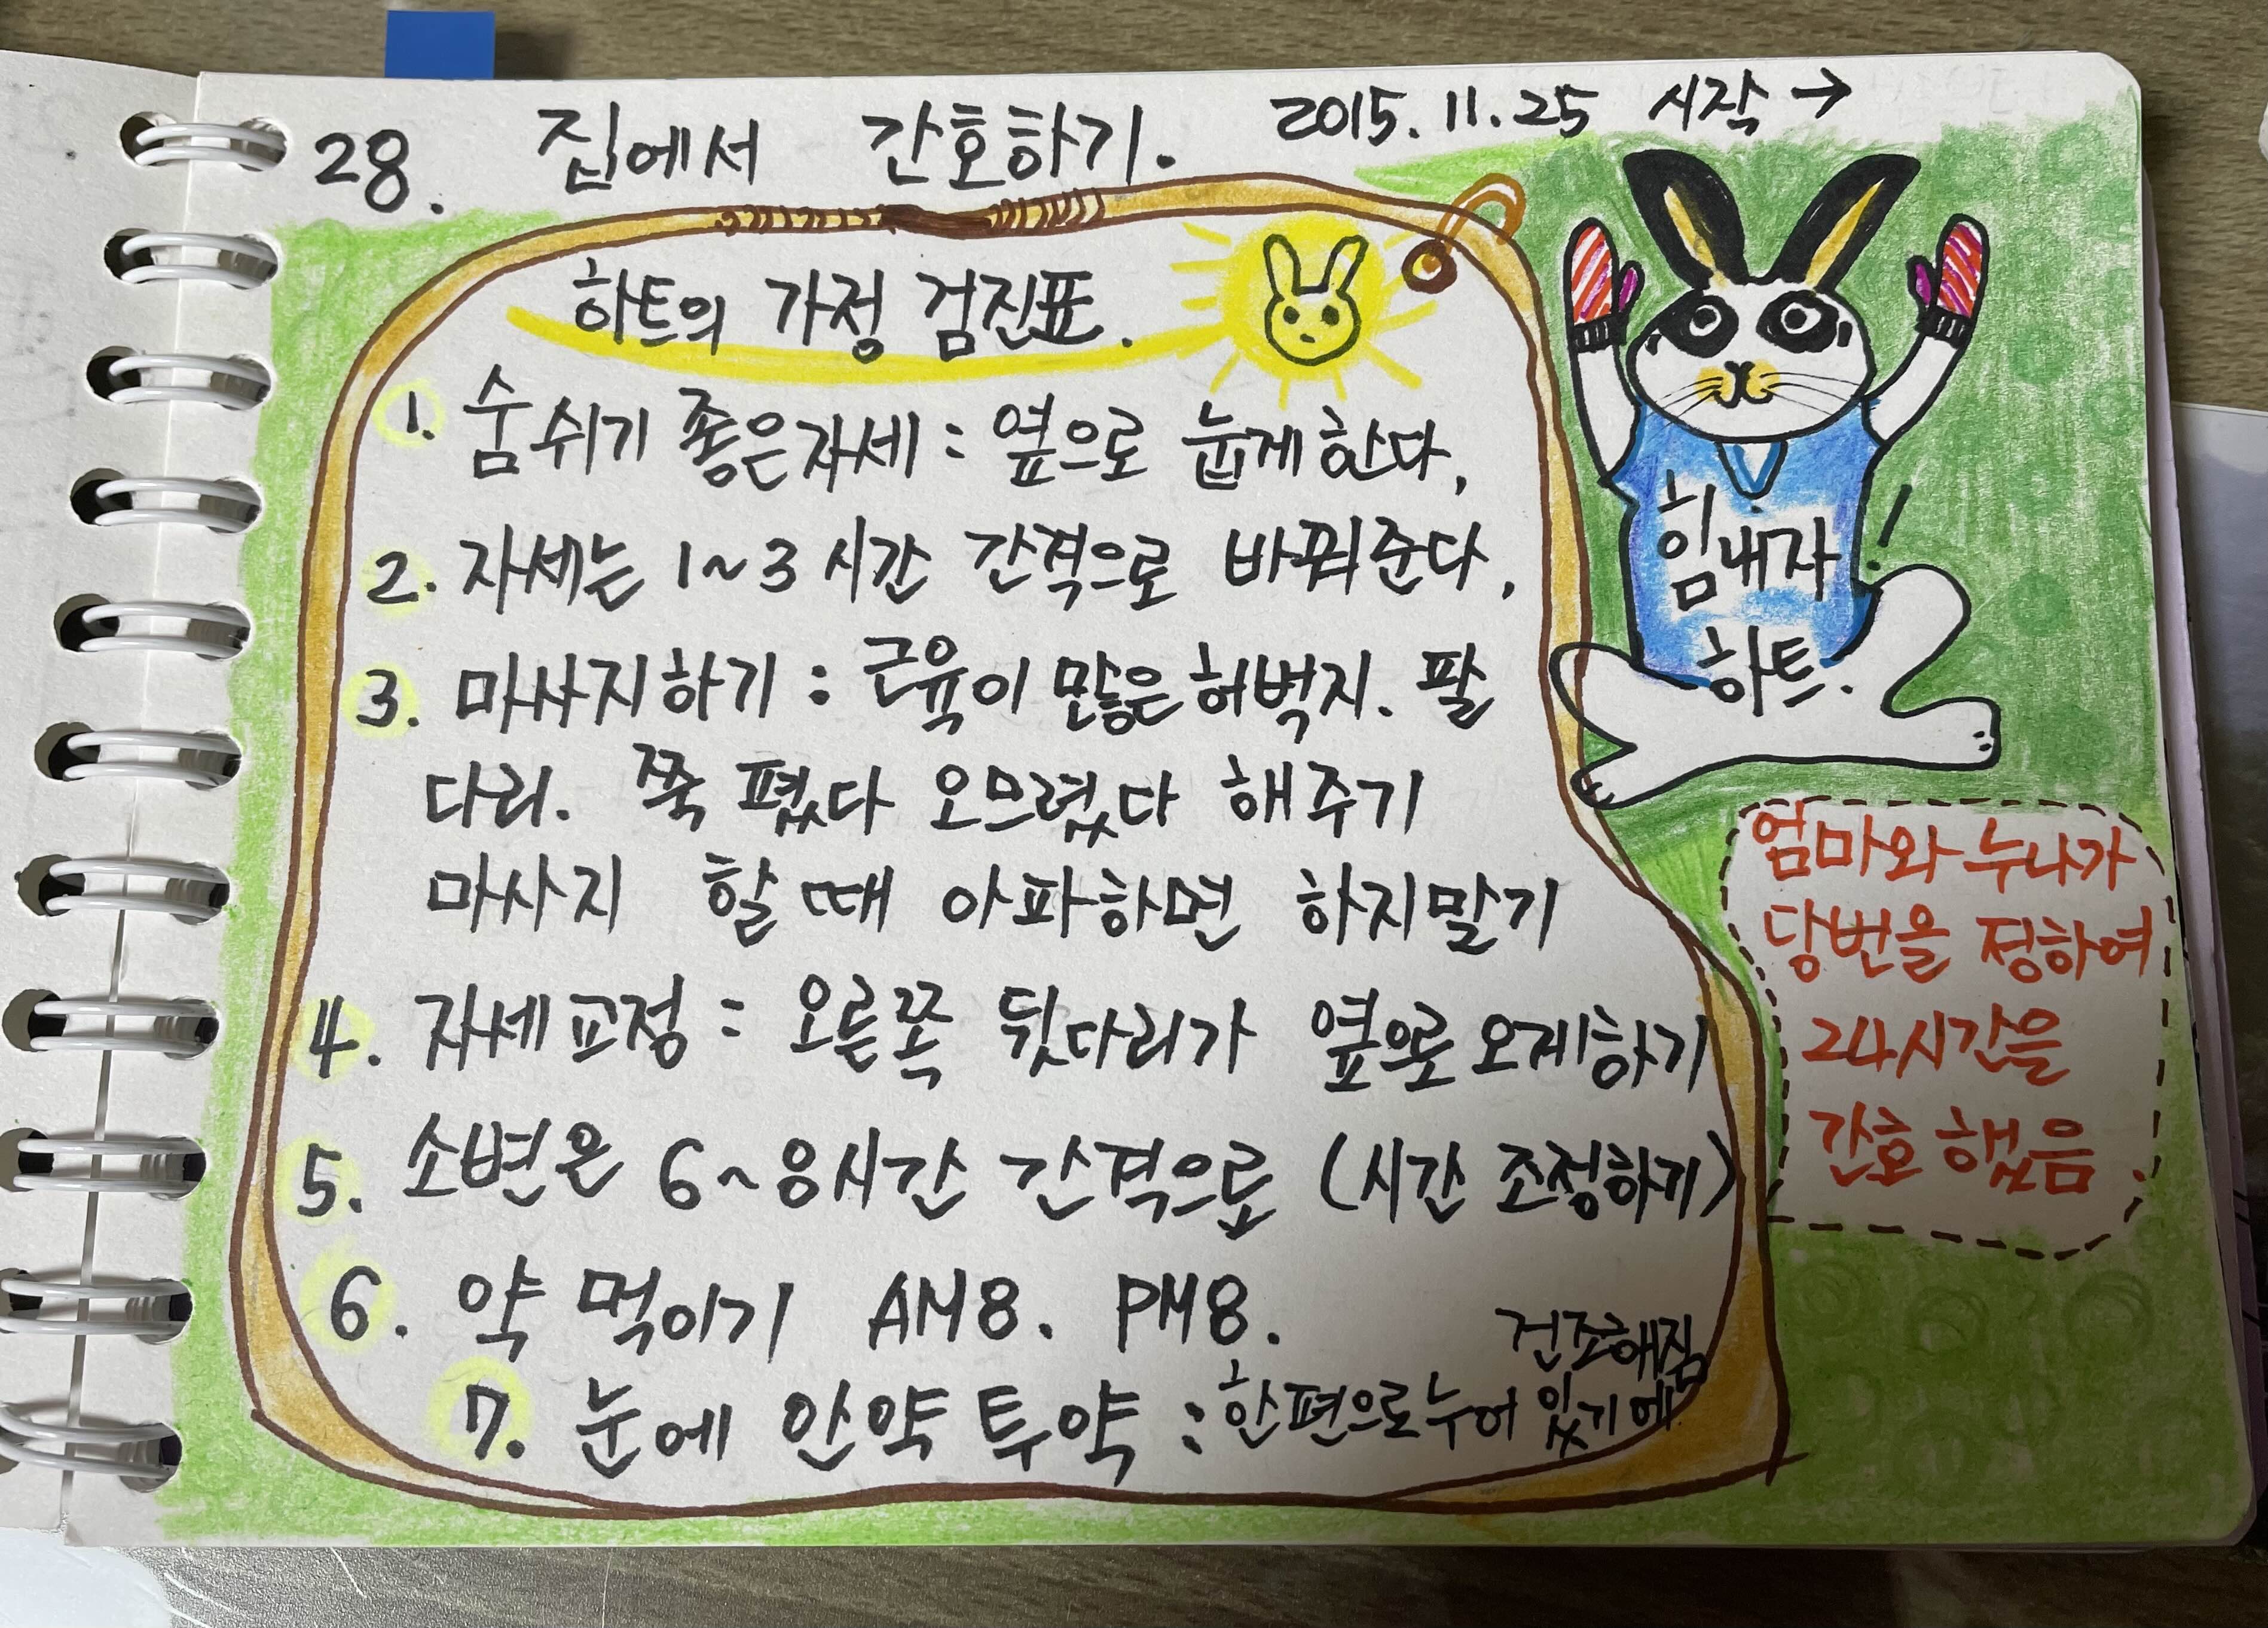 28. 집에서 간호하기. 2015.11.25 시작→
하트의 가정 검진표.
1. 숨쉬기 좋은자세 : 옆으로 눕게 한다.
2. 자세는 1~3시간 간격으로 바꿔준다.
3. 마사지하기 : 근육이 많은 허벅지. 팔
다리. 쭉 폈다 오므렸다 해주기
마사지 할 때 아파하면 하지말기
4. 자세교정 : 오른쪽 뒷다리가 옆으로 오게하기
5. 소변은 6~8시간 간격으로 (시간 조정하기)
6. 약 먹이기 AM8. PM8.
7. 눈에 안약 투약 : 한편으로 누어 있기에
건조해짐
힘내자!
하트.
엄마와 누나가
당번을 정하여
24시간을
간호 했음